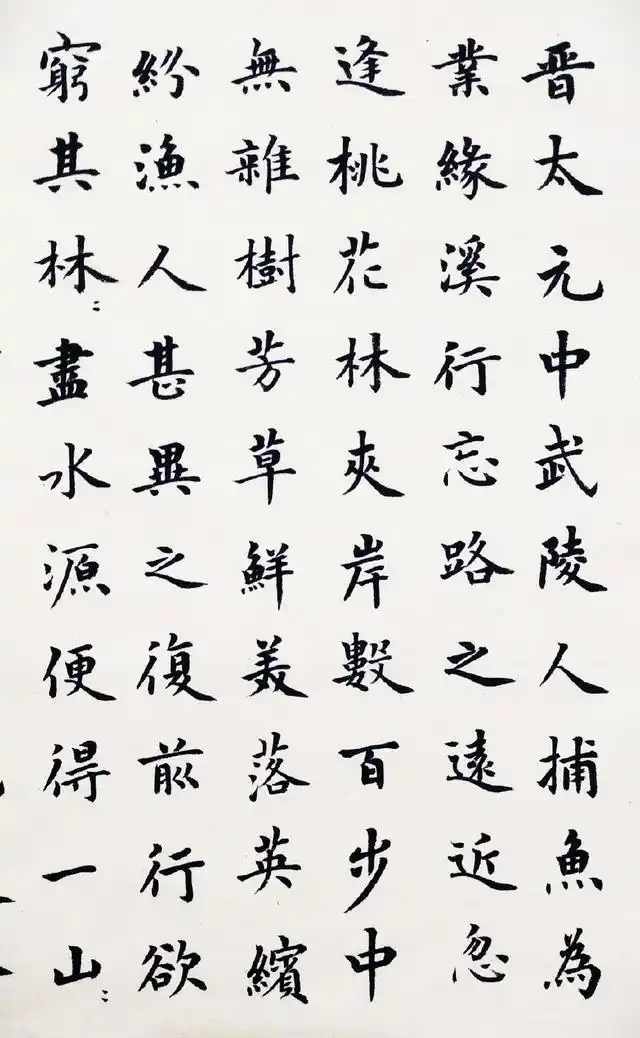 晋太元中武陵人捕魚為
業緣溪行忘路之遠近忽
逢桃花林夾岸數百步中
無雜樹芳草鮮美落英繽
紛漁人甚異之復前行欲
窮其林〻盡水源便得一山〻